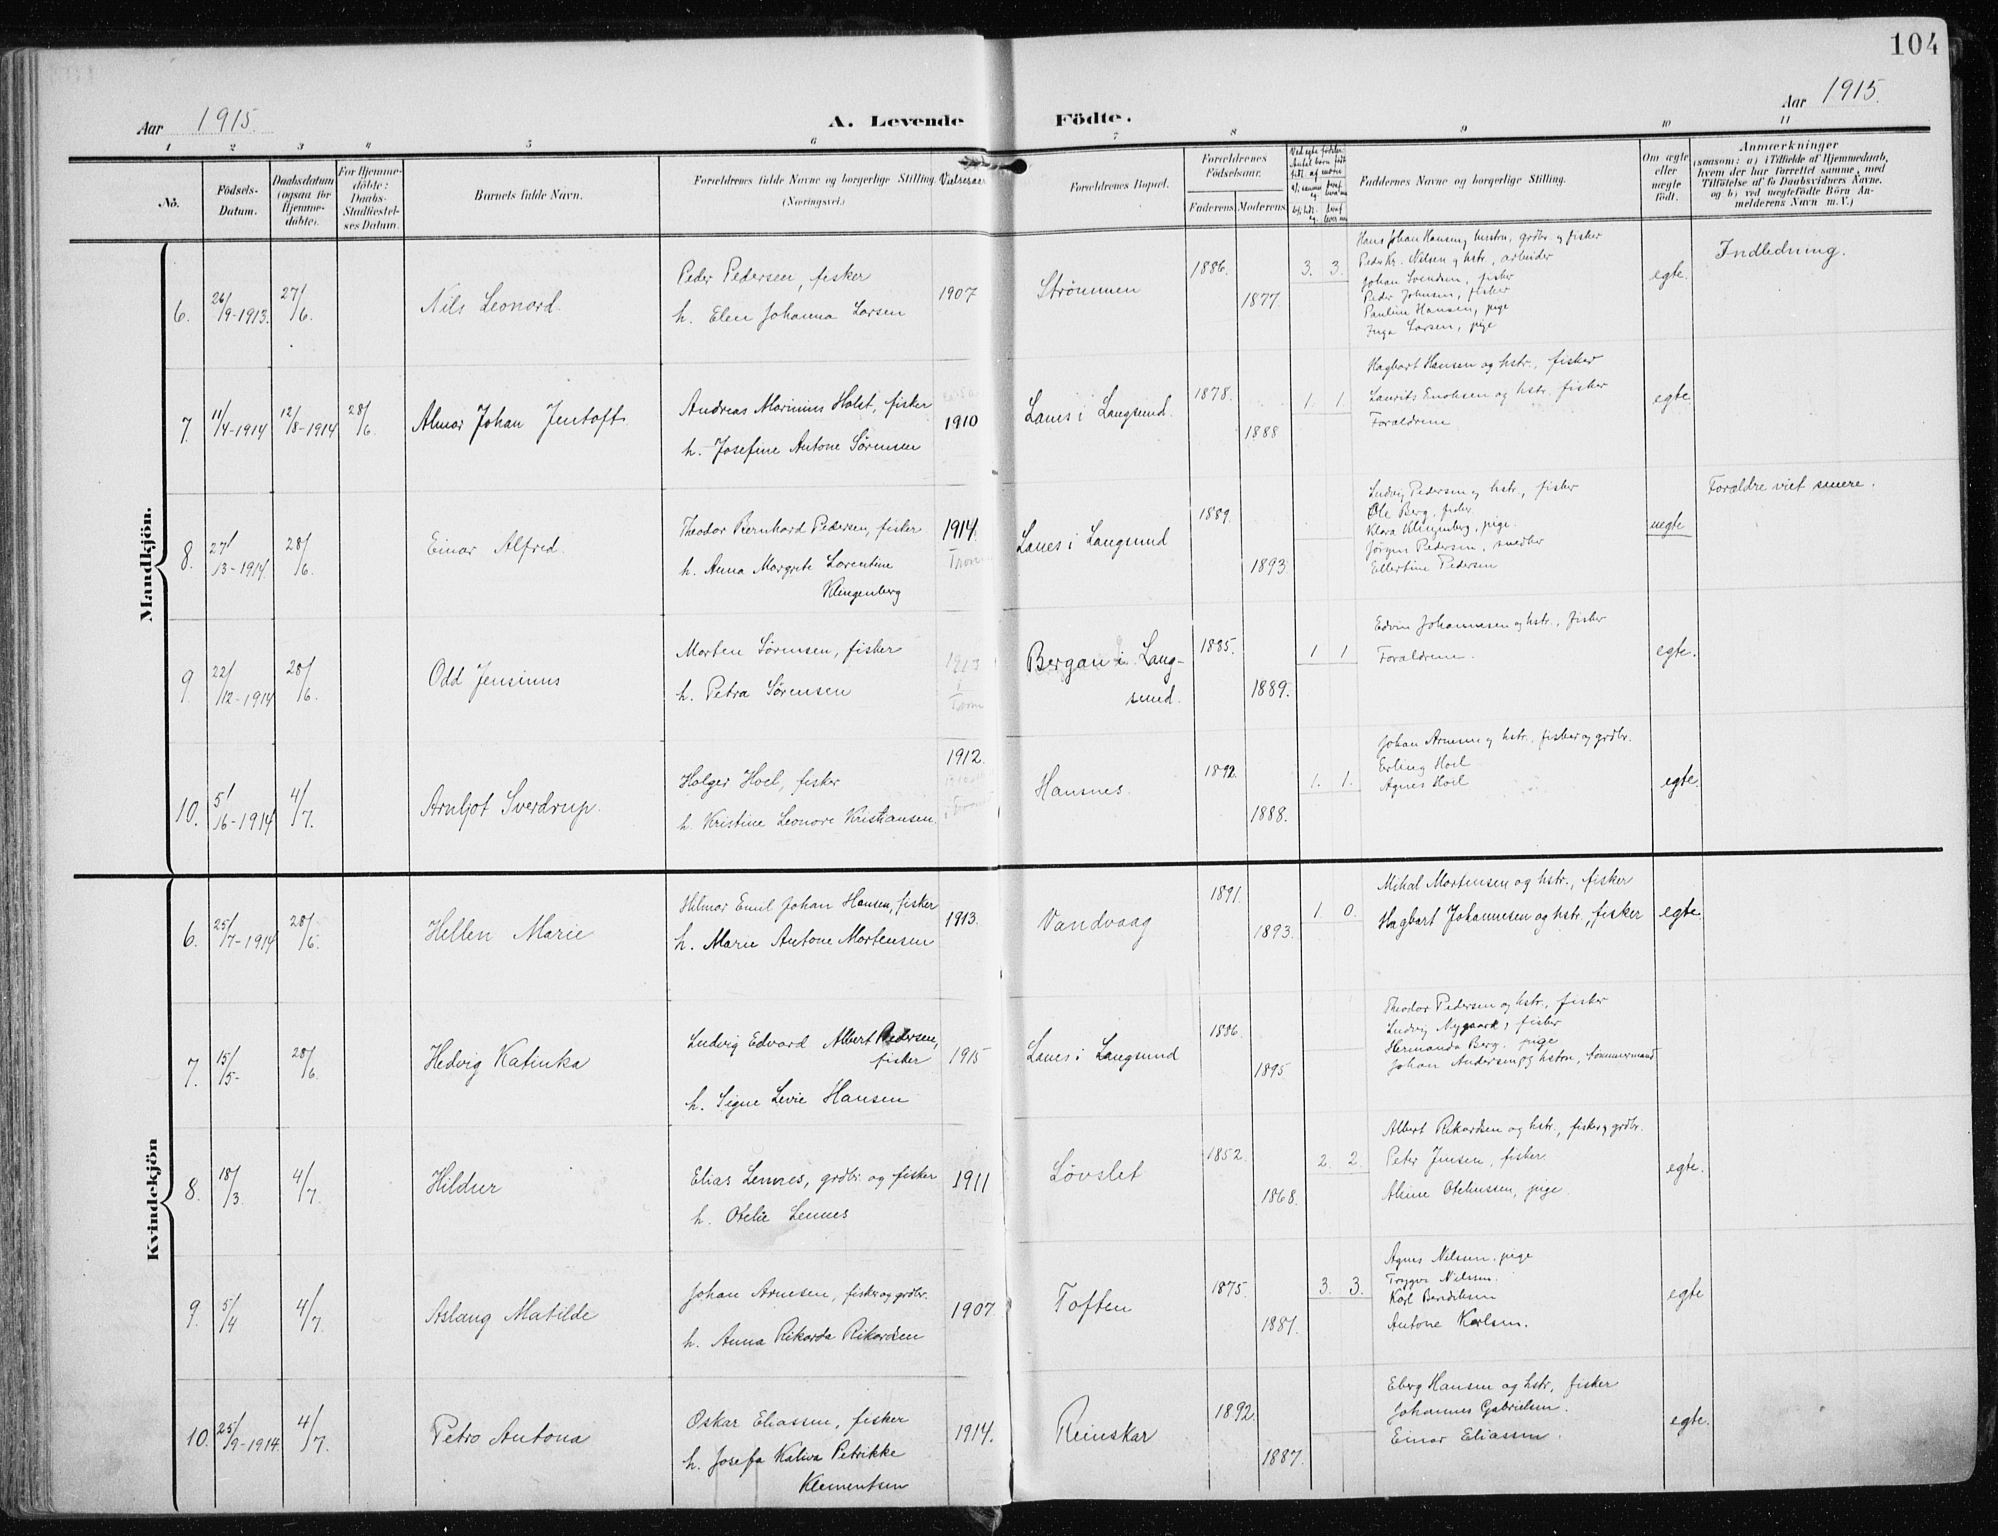 104
Aar 1915.
A. Levende Födte.
Aar 1915.
1 2 3 4 5 6 7 8 9 10 11
No.
Födsels-
Datum.
Daabsdatum
(ogsaa for
Hjemme-
döbte).
For Hjemme-
döbte:
Daabs-
Stadfæstel-
ses Datum.
Barnets fulde Navn.
Forældrenes fulde Navne og borgerlige Stilling.
(Næringsvei.)
Vielsesaar
Forældrenes Bopæl.
Forældrenes
Födselsaar.
Faderens. Moderens.
Faddernes Navne og borgerlige Stilling.
Om ægte
eller
uægte
födt.
Anmærkninger
(saasom: a) i Tilfælde af Hjemmedaab,
hvem der har forrettet samme, med
Tilföielse af to Daabsvidners Navne,
og b) ved uegtefödte Börn An-
melderens Navn m. V.)
Mandkjön.
6. 26/9-1913. 27/6. Nils Leonard.
Peder Pedersen, fisker
h. Elen Johanna Larsen
1907
Strömmen
1886.
1877.
3. 3.
Hans Johan Hansen og hustru, grdbr. og fisker
Peder Kr. Nilsen og hstr., arbeider
Johan Svendsen, fisker
Peder Johnsen, fisker
Pauline Hansen, pige
Inga Larsen, pige
egte.
Indledning.
7. 11/4-1914 12/8-1914 28/6. Almar Johan Jentoft
Andreas Marinius Holst, fisker
h. Josefine Antone Sörensen
1910
Lanes i Langsund.
1878.
1888
1. 1.
Hagbart Hansen og hstr., fisker
Laurits Enoksen og hstr. fisker
Forældrene
egte.
8. 27/13-1914. 28/6. Einar Alfred.
Theodor Bernhard Pedersen, fisker
h. Anna Margrete Lorentine
Klingenberg
1914.
Lanes i Langsund
1889.
1893.
Ludvig Pedersen og hstr., fisker
Ole Berg, fisker
Klara Klingenberg, pige.
Jörgen Pedersen, snedker
Ellertine Pedersen
uegte
Forældre viet senere.
9. 22/12-1914 28/6. Odd Jensinus
Morten Sörensen, fisker
h. Petra Sörensen
1913
Bergan i Lang-
sund.
1885.
1889.
1 1
Edvin Johannesen og hstr., fisker
Forældrene.
egte.
10. 5/16-1914 4/7. Arnljot Sverdrup.
Holger Hoel, fisker
h. Kristine Leonore Kristiansen.
1912.
Hansnes.
1892.
1888.
1. 1.
Johan Arnesen og hstr., fisker og grdbr.
Erling Hoel
Agnes Hoel
egte.
Kvindekjön
6. 25/7-1914 28/6. Hellen Marie
Hilmar Emil Johan Hansen, fisker
h. Marie Antone Mortensen
1913.
Vandvaag
1891.
1893.
1 0.
Mihal Mortensen og hstr., fisker
Hagbart Johannesen og hstr., fisker
egte.
7. 15/5- 28/6. Hedvig Katinka
Ludvig Edvard Albert Pedersen,
fisker
h. Signe Levie Hansen
1915
Lanes i Langsund
1886.
1895
Theodor Pedersen og hstr., fisker
Ludvig Nygaard, fisker
Hermanda Berg. pige
Johan Andersen og hstru, tömmermand
8. 18/3. 4/7. Hildur
Elias Lennes, grdbr. og fisker
h. Otelie Lennes
1911
Lövslet
1852.
1868.
2. 2
Albert Rikardsen og hstr., fisker og grdbr.
Peter Jensen, fisker
Alvine Oteliussen, pige.
egte.
9. 5/4 4/7. Aslaug Matilde
Johan Arnesen, fisker og grdbr.
h. Anna Rikarda Rikardsen
1907.
Toften
1875.
1881.
3. 3.
Agnes Nilssen. pige
Trygve Nilssen.
Karl Bendiksen
Antone Karlsen.
egte
10. 25/9-1914. 4/7. Petra Antona
Oskar Eliassen, fisker
h. Josefa Kaliva Petrikke
Klementsen
1914.
Reinskar
1892.
1887.
Eberg Hansen og hstr., fisker
Johannes Gabrielsen.
Einar Eliassen.
egte.